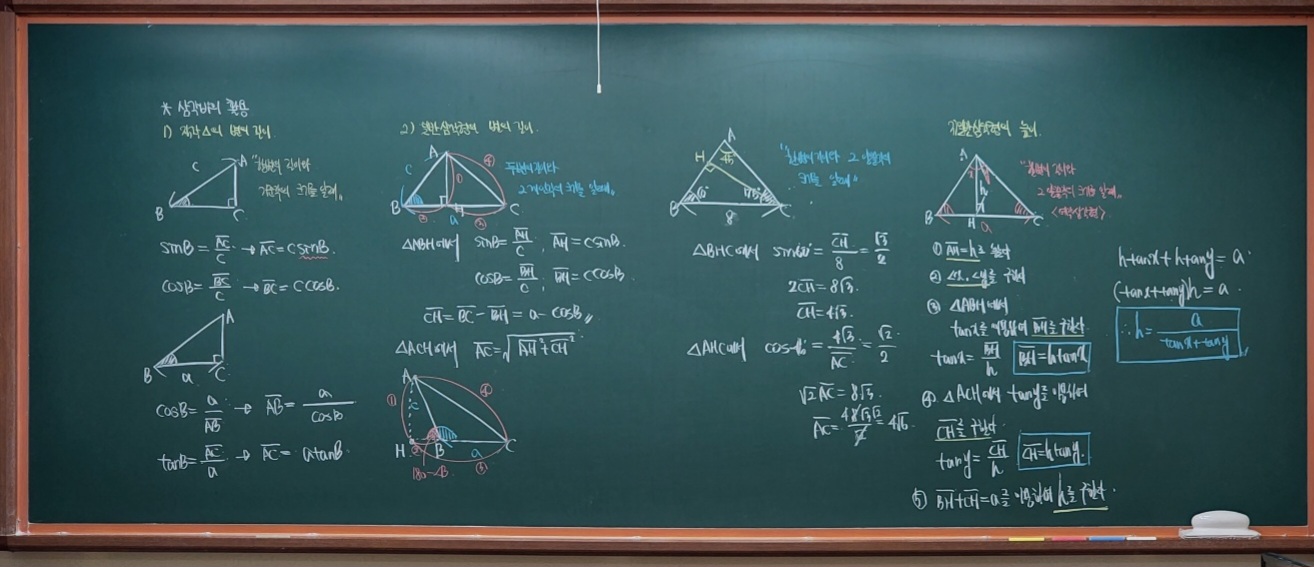 * 삼각비의 활용
1) 직각△의 변의 길이
A
c
B
C
"한변의 길이와
기준각의 크기를 알때"
sinB = AC/C → AC = CsinB.
cosB = BC/C → BC = CcosB.
A
B
a
C
cosB = a/AB → AB = a/cosB
tanB = AC/a → AC = atanB
2) 일반삼각형의 변의 길이.
A
c
①
④
B
②
H
③
C
a
두변의 길이와
그 끼인각의 크기를 알때"
△ABH에서 sinB = AH/C, AH = CsinB.
cosB = BH/C, BH = CcosB
CH = BC - BH = a - cosB
△ACH에서 AC = √AH²+CH²
A
①
c
④
H
②
B
a
C
180-∠B
③
A
H
45°
60°
B
8
C
"한변의 길이와 그 양끝각의
크기를 알때"
△BHC에서 sin60° = CH/8 = √3/2
2CH = 8√3.
CH = 4√3.
△AHC에서 cos45° = 4√3/AC = √2/2
√2 AC = 8√3.
= 4√6
일반삼각형의 높이.
A
x
y
h
B
H
C
a
"한변의 길이와
그 양끝각의 크기를 알때"
<예각삼각형>
① AH = h로 놓는다
② ∠x, ∠y를 구한다
③ △ABH에서
tanx를 이용하여 BH를 구한다
tanx = BH/h BH = htanx
④ △ACH에서 tany를 이용하여
CH를 구한다
tany = CH/h CH = htany.
⑤ BH+CH = a를 이용하여 h를 구한다.
htanx + htany = a.
(tanx+tany)h = a.
∴ h = a/tanx+tany